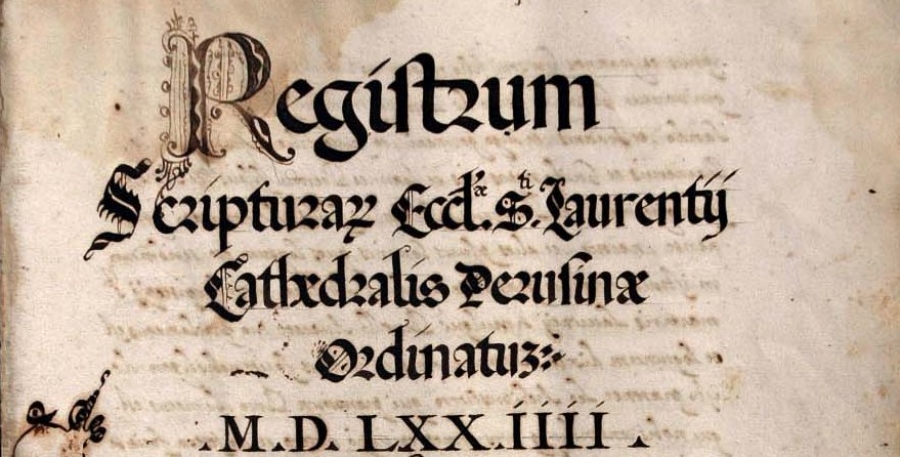 Registrum
Scripturaꝝ Eccl.ᵃᵉ S.ᵗⁱ Laurentij
Cathedralis Perusinæ
Ordinatuz:
.M.D.LXX.IIII.